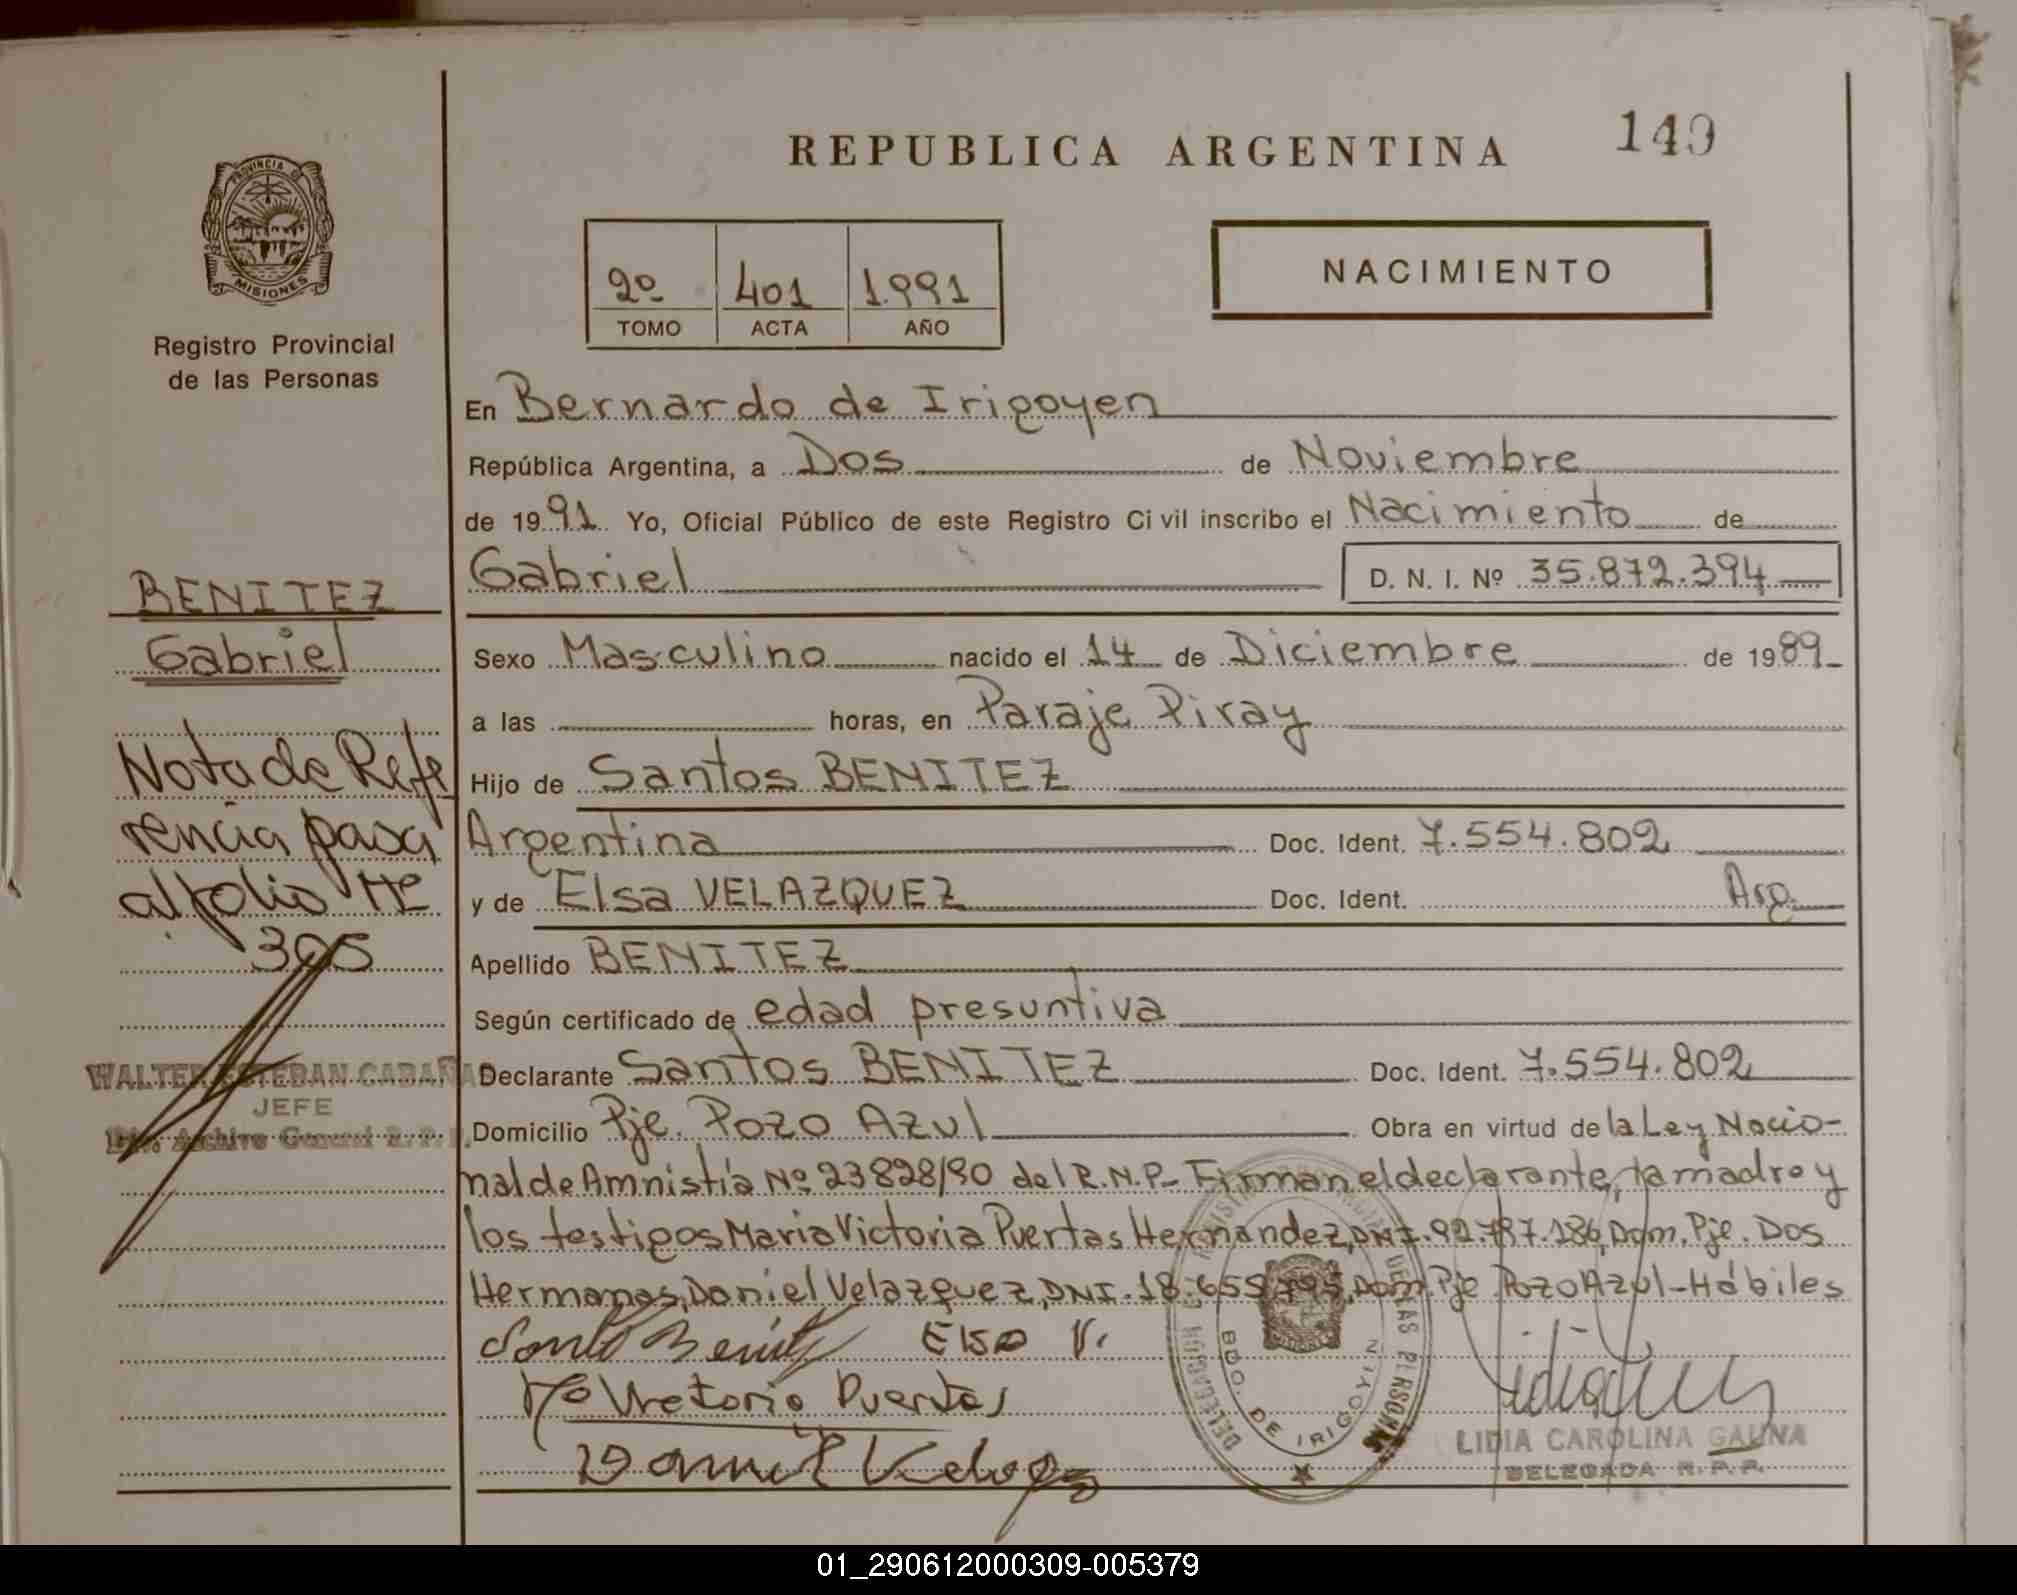 REPUBLICA ARGENTINA
149
PROVINCIA DE
MISIONES
Registro Provincial
de las Personas
2º 401 1.991
TOMO ACTA AÑO
NACIMIENTO
En Bernardo de Irigoyen
República Argentina, a Dos de Noviembre
de 1991 Yo, Oficial Público de este Registro Civil inscribo el Nacimiento de
Gabriel D. N. I. Nº 35.872.394
BENITEZ
Gabriel
Nota de Refe
rencia pasa
al folio Nº
305
WALTER ESTEBAN CABAÑA
JEFE
Dir. Archivo General R. P. P.
Sexo Masculino nacido el 14 de Diciembre de 1989
a las horas, en Paraje Piray
Hijo de Santos BENITEZ
Argentina Doc. Ident. 7.554.802
y de Elsa VELAZQUEZ Doc. Ident. Arg.
Apellido BENITEZ
Según certificado de edad presuntiva
Declarante Santos BENITEZ Doc. Ident. 7.554.802
Domicilio Pje. Pozo Azul Obra en virtud de la Ley Nacio-
nal de Amnistía Nº 23828/90 del R.N.P.- Firman el declarante, la madre y
los testigos Maria Victoria Puertas Hernandez, DNI. 92.787.186, Dom. Pje. Dos
Hermanas, Daniel Velazquez, DNI. 18.659.795, Dom. Pje. Pozo Azul - Hábiles
Santo Benitez Elsa V.
Mª Victoria Puertas
Daniel Velazquez
DELEGACION BDO. DE IRIGOYEN
DE LAS PERSONAS
LIDIA CAROLINA GAUNA
DELEGADA R. P. P.
01_290612000309-005379